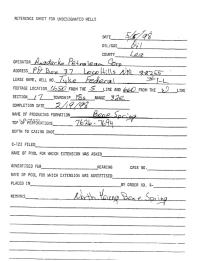 REFERENCE SHEET FOR UNDESIGNATED WELLS
DATE 5/6/98
OIL/GAS Oil
COUNTY Lea
OPERATOR Anadarko Petroleum Corp
ADDRESS PO Box 37 Loco Hills NM 88255
LEASE NAME, WELL NO. Tyke Federal
FOOTAGE LOCATION 1650 FROM THE S LINE AND 660 FROM THE W LINE
SECTION 17 TOWNSHIP 18s RANGE 32e
COMPLETION DATE 2/19/98
NAME OF PRODUCING FORMATION Bone Spring
TOP OF PERFORATIONS 7626 - 7694
DEPTH TO CASING SHOE
C-123 FILED
NAME OF POOL FOR WHICH EXTENSION WAS ASKED
ADVERTISED FOR HEARING CASE NO.
NAME OF POOL FOR WHICH EXTENSION WAS ADVERTISED
PLACED IN BY ORDER NO. R-
REMARKS North Young Bone Spring